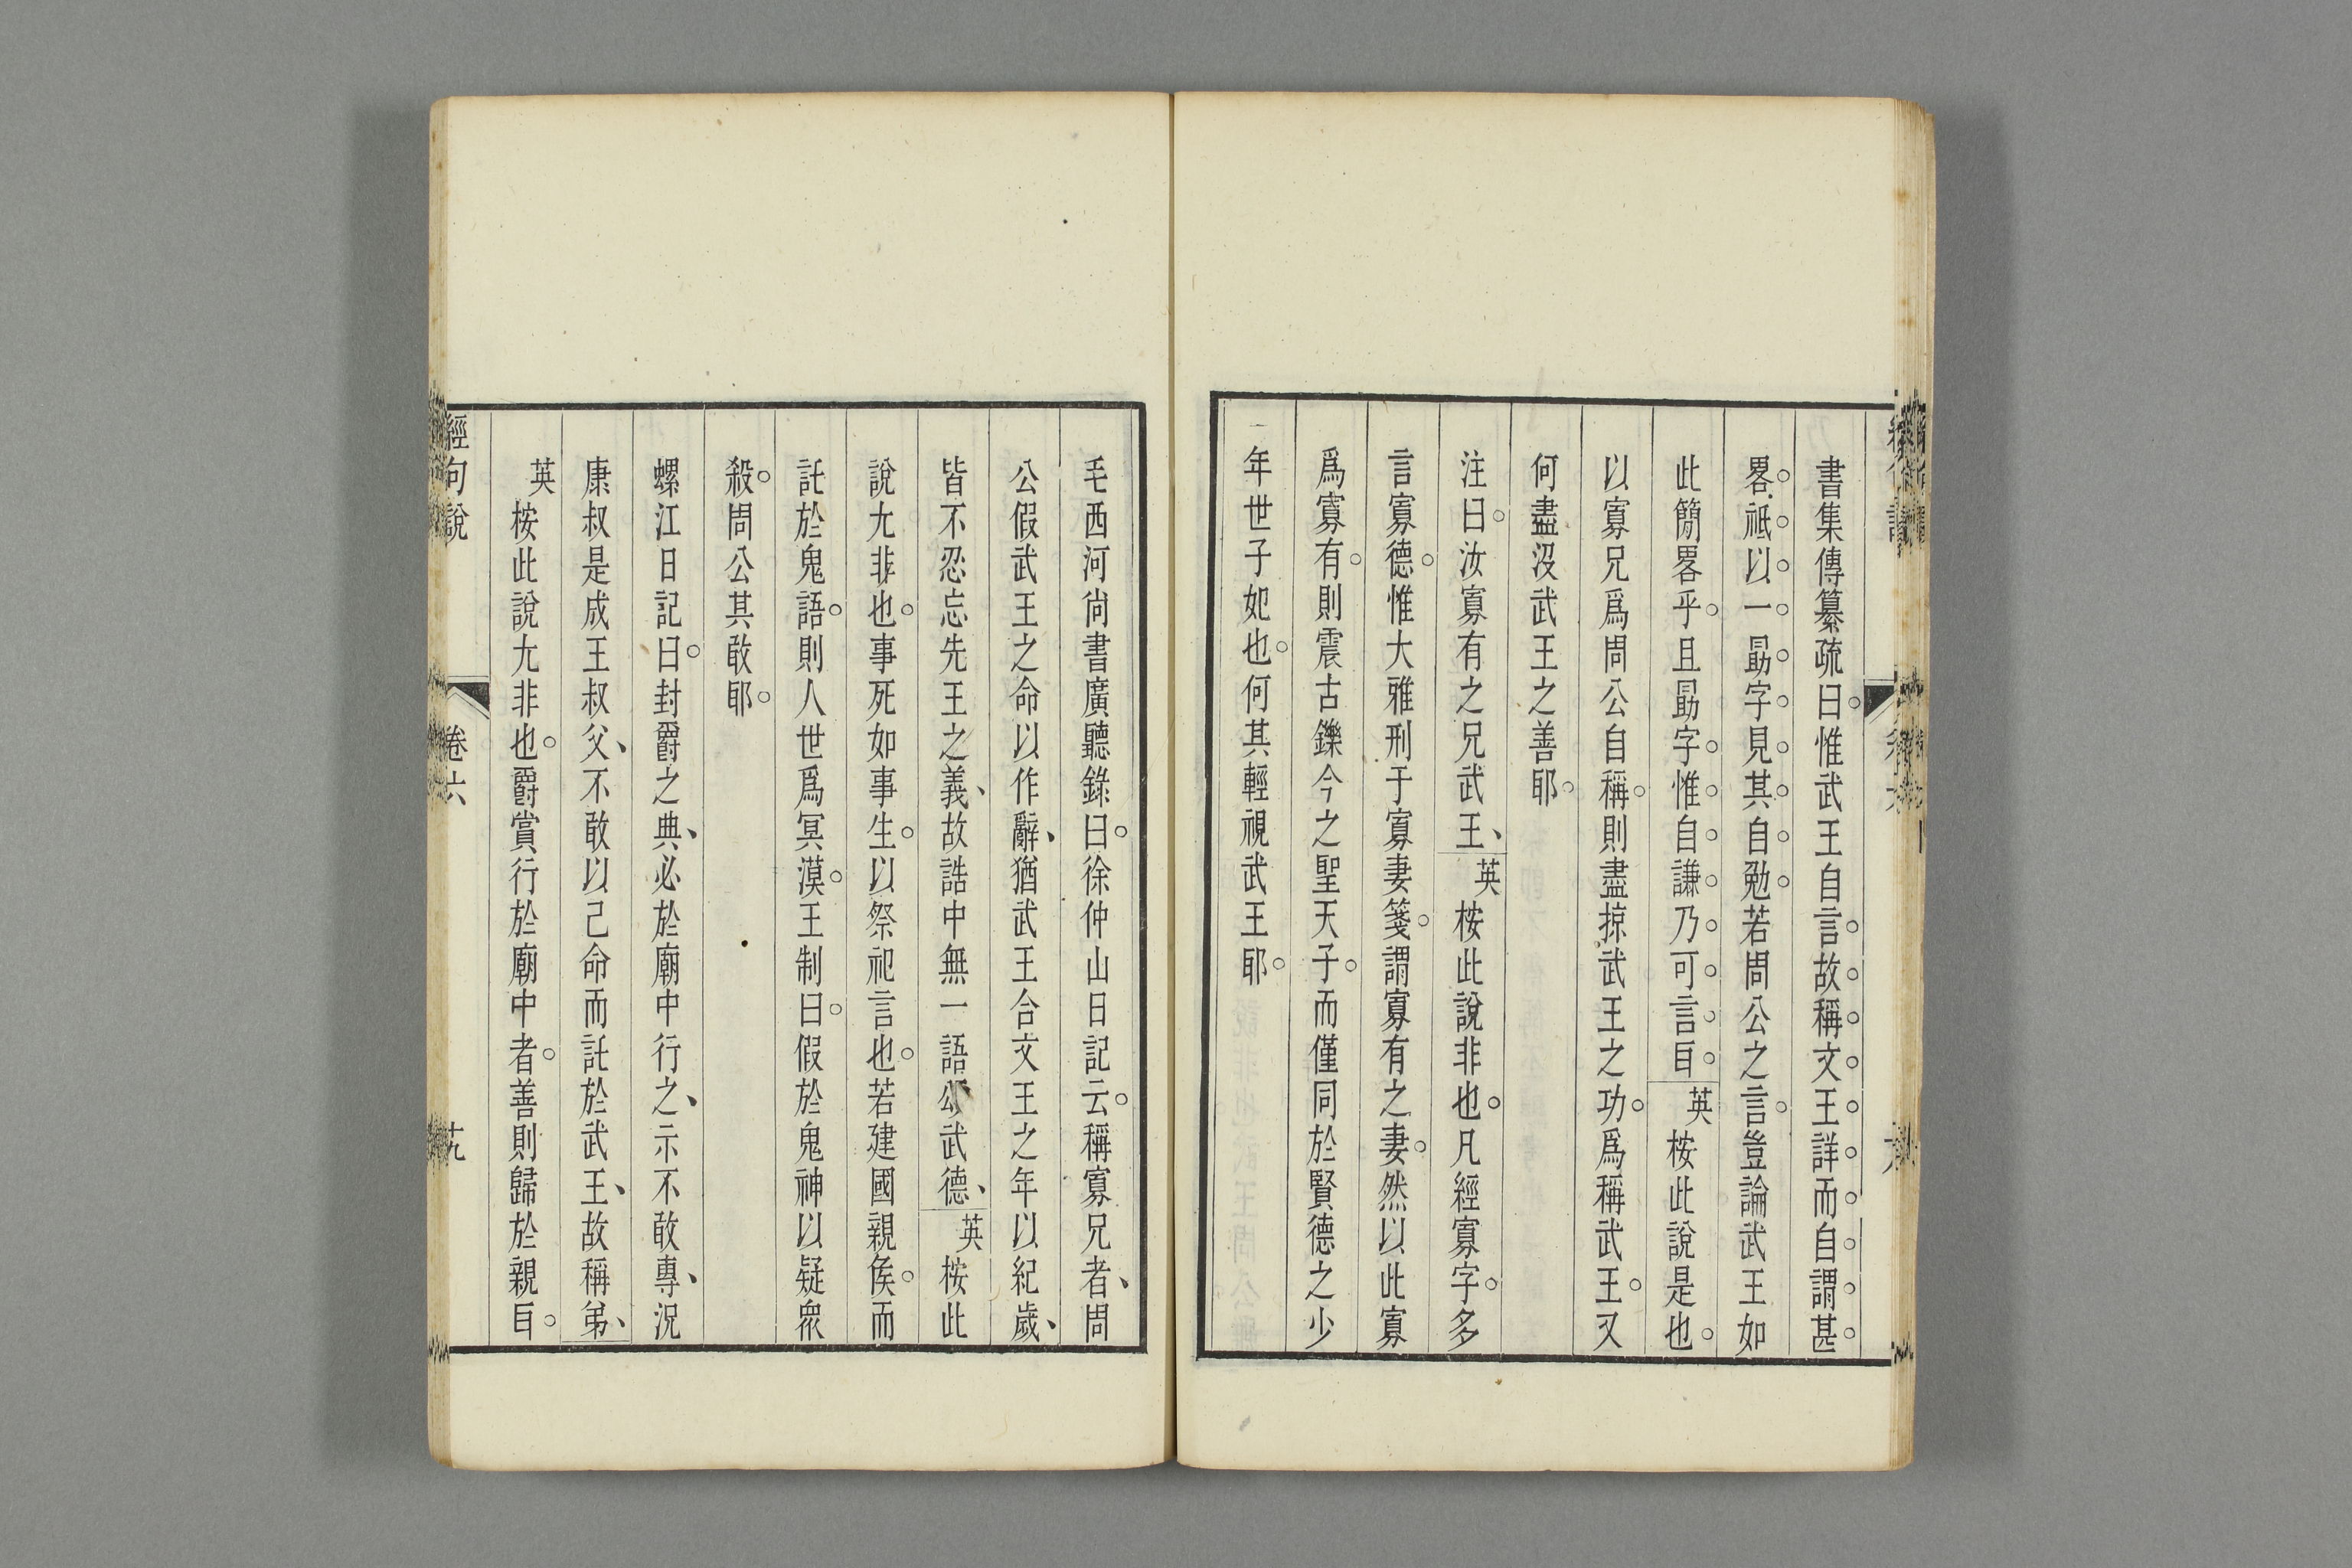 書集傳纂疏曰惟武王自言故稱文王詳而自謂甚
畧祗以一勗字見其自勉若周公之言豈論武王如
此簡畧乎且勗字惟自謙乃可言耳英桉此說是也
以寡兄爲周公自稱則盡掠武王之功爲稱武王又
何盡沒武王之善耶
注曰汝寡有之兄武王英桉此說非也凡經寡字多
言寡德惟大雅刑于寡妻箋謂寡有之妻然以此寡
爲寡有則震古鑠今之聖天子而僅同於賢德之少
年世子妃也何其輕視武王耶
毛西河尙書廣聽錄曰徐仲山日記云稱寡兄者周
公假武王之命以作辭猶武王合文王之年以紀歲
皆不忍忘先王之義故誥中無一語頌武德英桉此
說尢非也事死如事生以祭祀言也若建國親侯而
託於鬼語則人世爲冥漠王制曰假於鬼神以疑衆
殺周公其敢耶
螺江日記曰封爵之典必於廟中行之示不敢專況
康叔是成王叔父不敢以己命而託於武王故稱弟
英桉此說尢非也爵賞行於廟中者善則歸於親耳
經句說
卷六